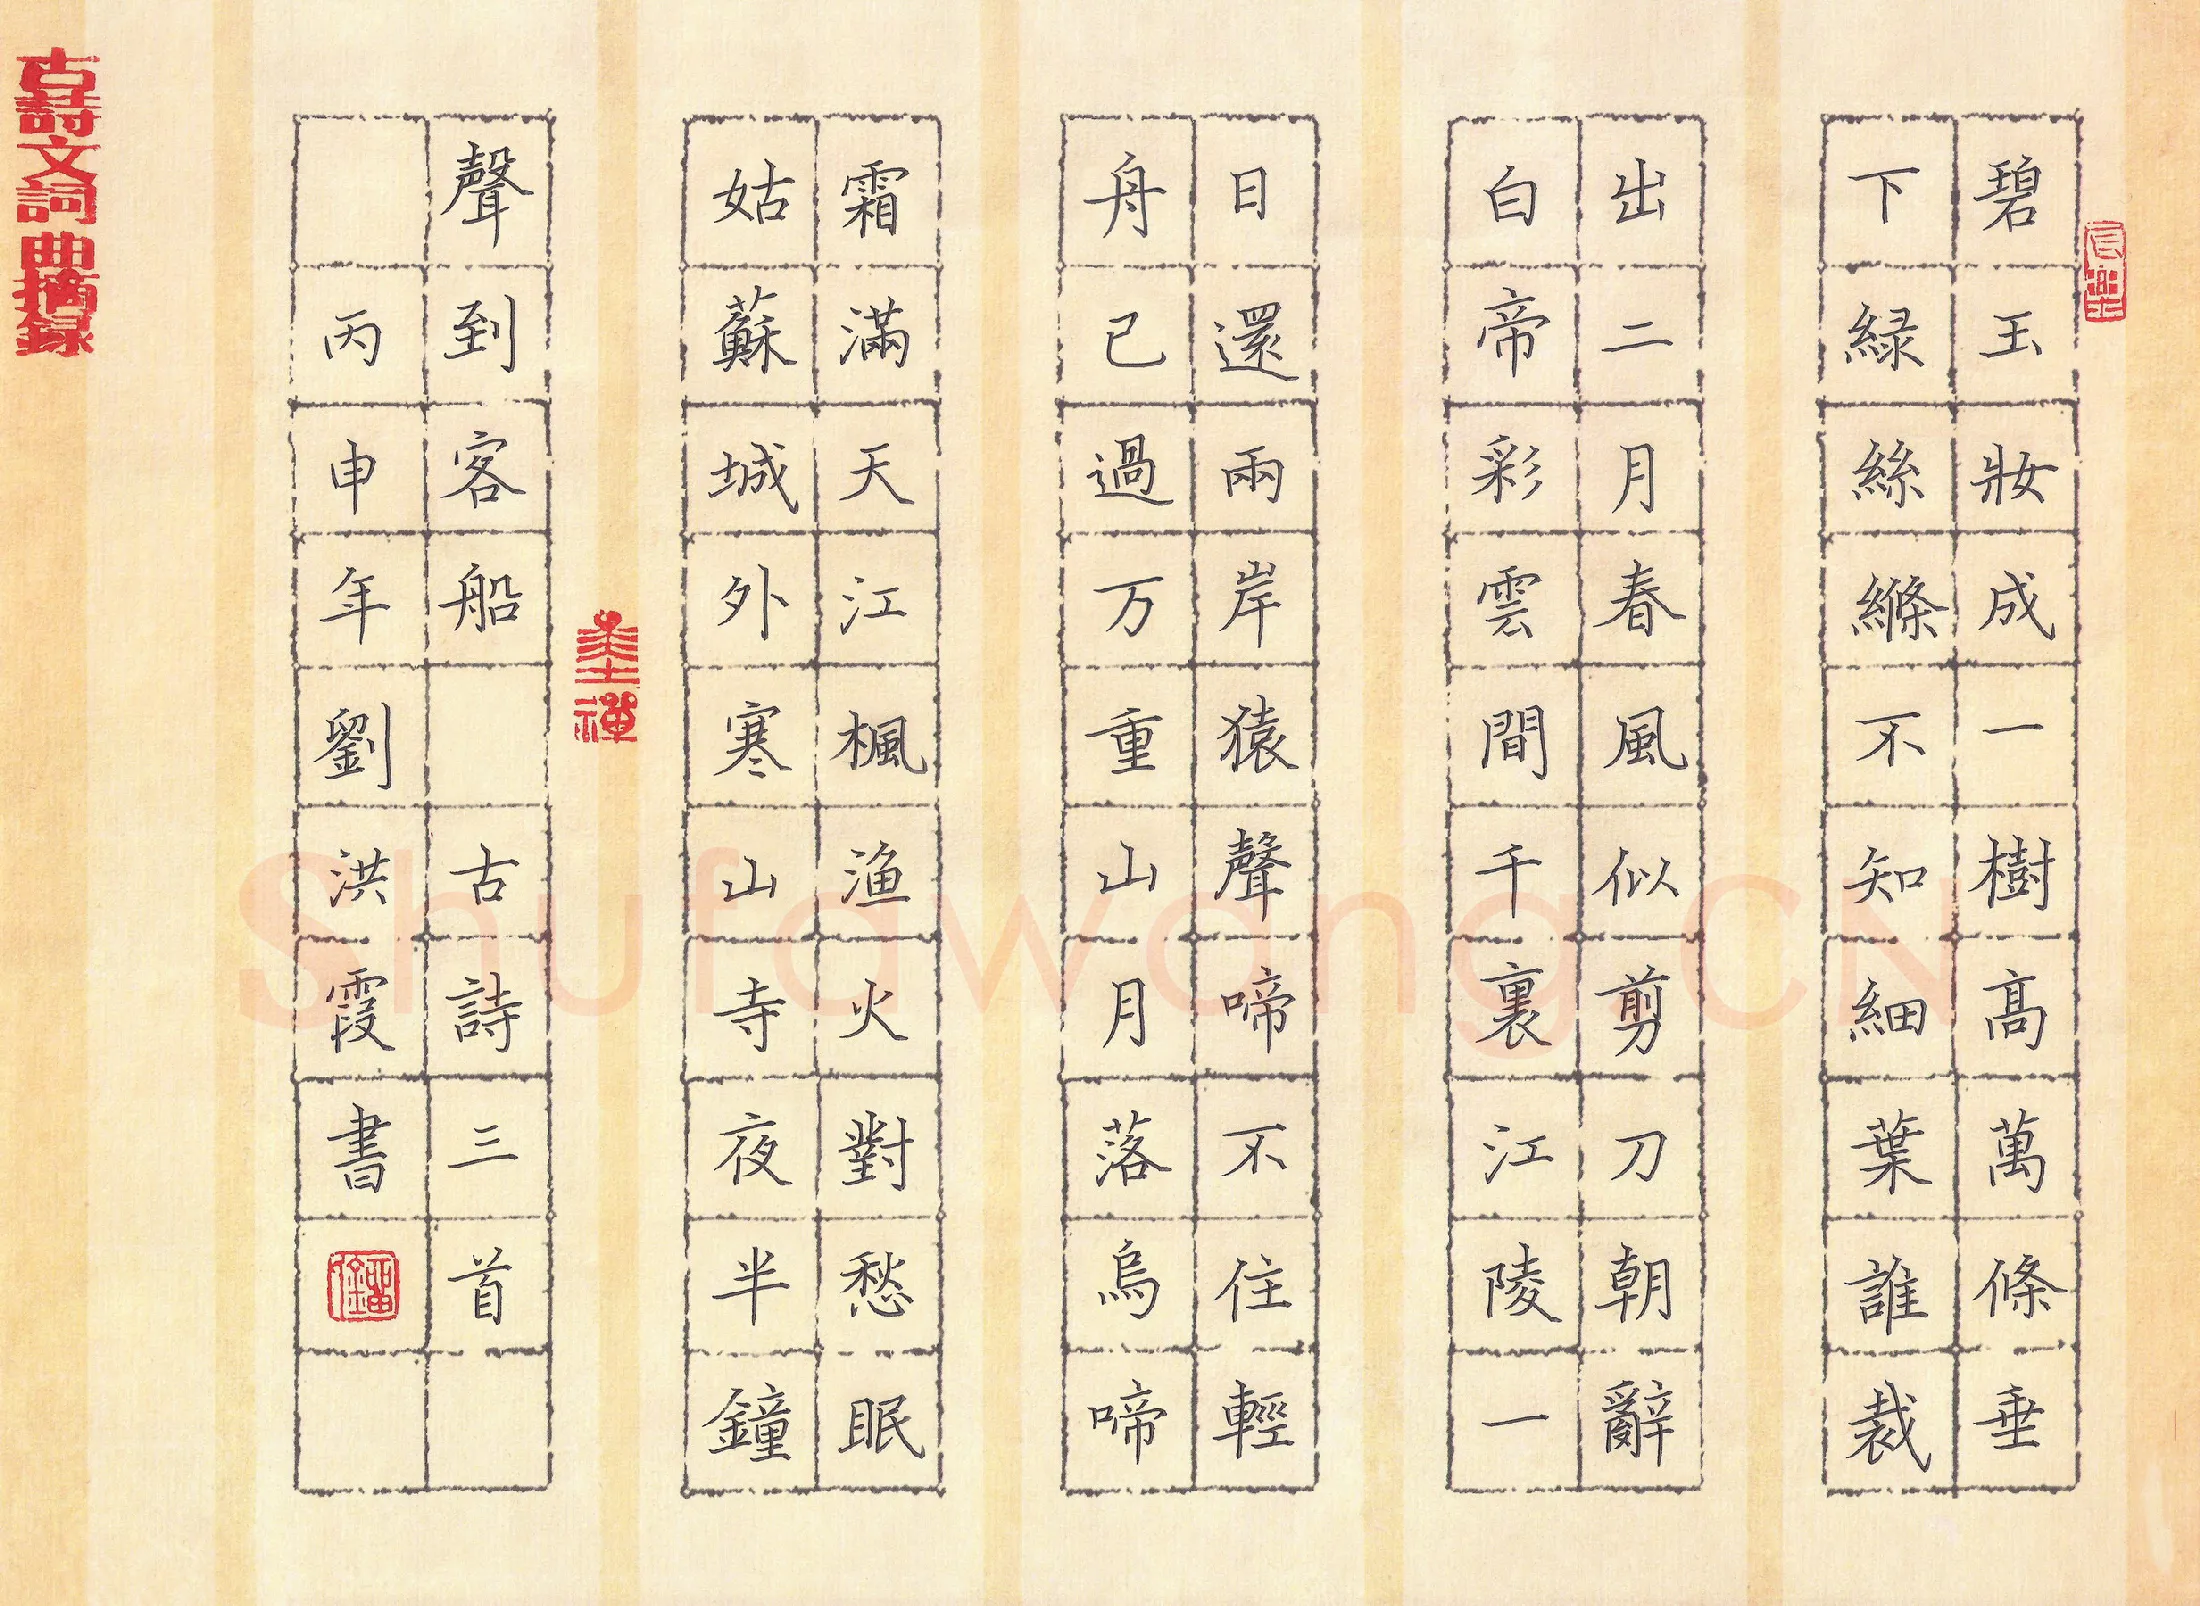 碧玉妝成一樹高萬條垂
下緑絲縧不知細葉誰裁
出二月春風似剪刀朝辭
白帝彩雲間千裏江陵一
日還兩岸猿聲啼不住輕
舟已過万重山月落烏啼
霜滿天江楓渔火對愁眠
姑蘇城外寒山寺夜半鐘
聲到客船 古詩三首
丙申年劉洪霞書
古詩文詞曲摘録
墨禅
Shufawang.CN